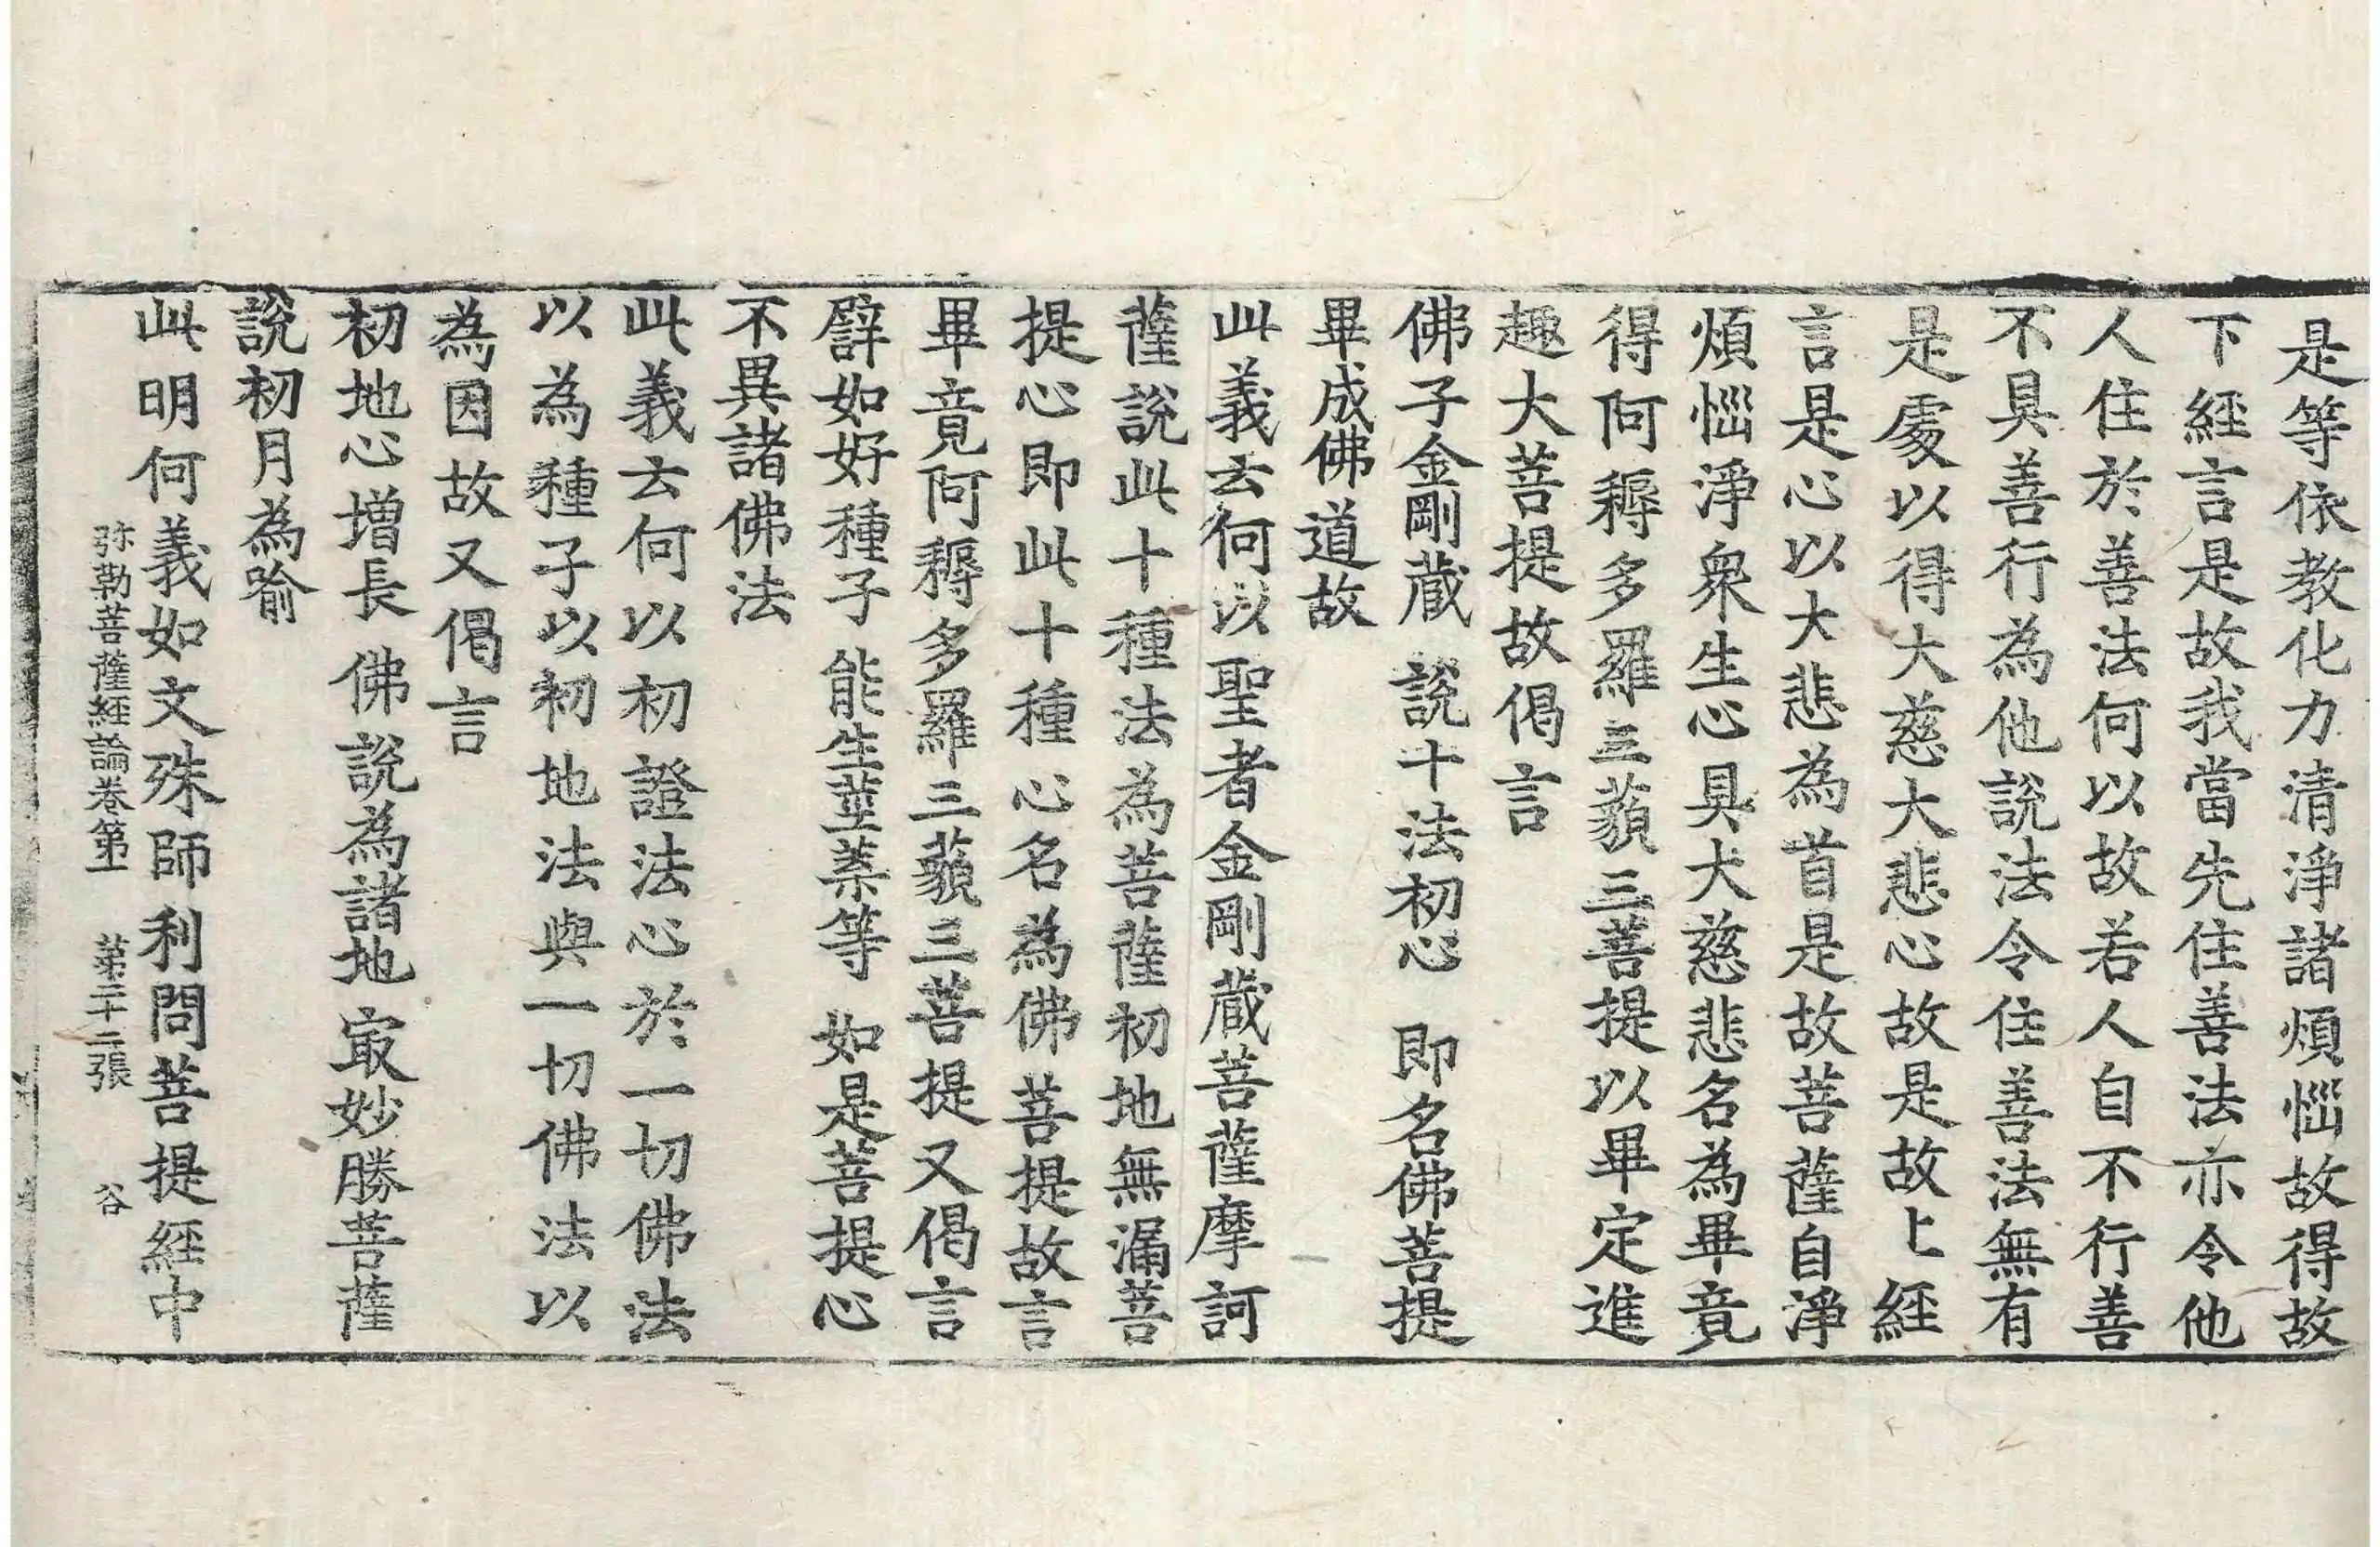 是等依教化力清淨諸煩惱故得故
下經言是故我當先住善法亦令他
人住於善法何以故若人自不行善
不具善行為他說法令住善法無有
是處以得大慈大悲心故是故上經
言是心以大悲為首是故菩薩自淨
煩惱淨衆生心具大慈悲名為畢竟
得阿耨多羅三藐三菩提以畢定進
趣大菩提故偈言
佛子金剛藏 說十法初心 即名佛菩提
畢成佛道故
此義云何以聖者金剛藏菩薩摩訶
薩說此十種法為菩薩初地無漏菩
提心即此十種心名為佛菩提故言
畢竟阿耨多羅三藐三菩提又偈言
譬如好種子 能生莖葉等 如是菩提心
不異諸佛法
此義云何以初證法心於一切佛法
以為種子以初地法與一切佛法以
為因故又偈言
初地心增長 佛說為諸地 㝡妙勝菩薩
說初月為喻
此明何義如文殊師利問菩提經中
弥勒菩薩經論卷第一 第二十二張 谷